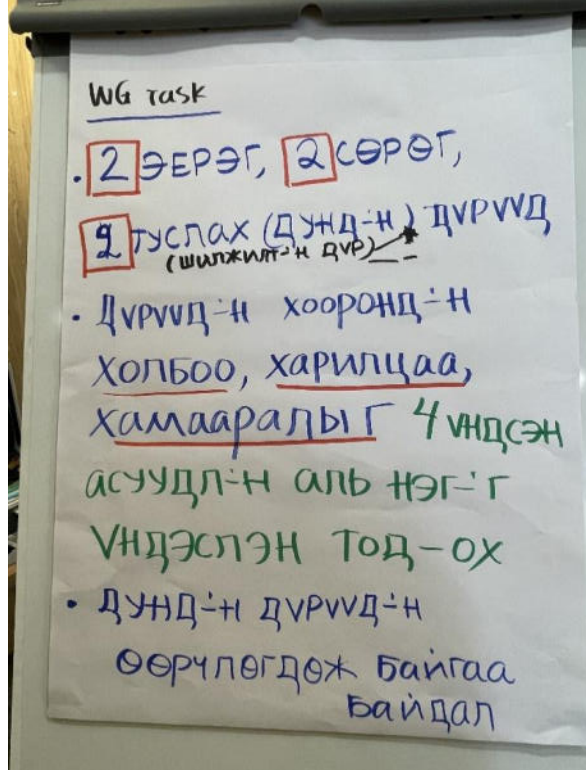 WG task
• 2 ЭЕРЭГ, 2 СӨРӨГ,
2 ТУСЛАХ (ДУНД-Н) ДVРVVД
(ШИЛЖИЛТ-Н ДVР)
• ДVРVVД-Н ХООРОНД-Н
ХОЛБОО, ХАРИЛЦАА,
ХАМААРАЛЫГ 4 VНДСЭН
АСУУДЛ-Н АЛЬ НЭГ-Г
VНДЭСЛЭН ТОД-ОХ
• ДУНД-Н ДVРVVД-Н
ӨӨРЧЛӨГДӨЖ БАЙГАА
БАЙДАЛ